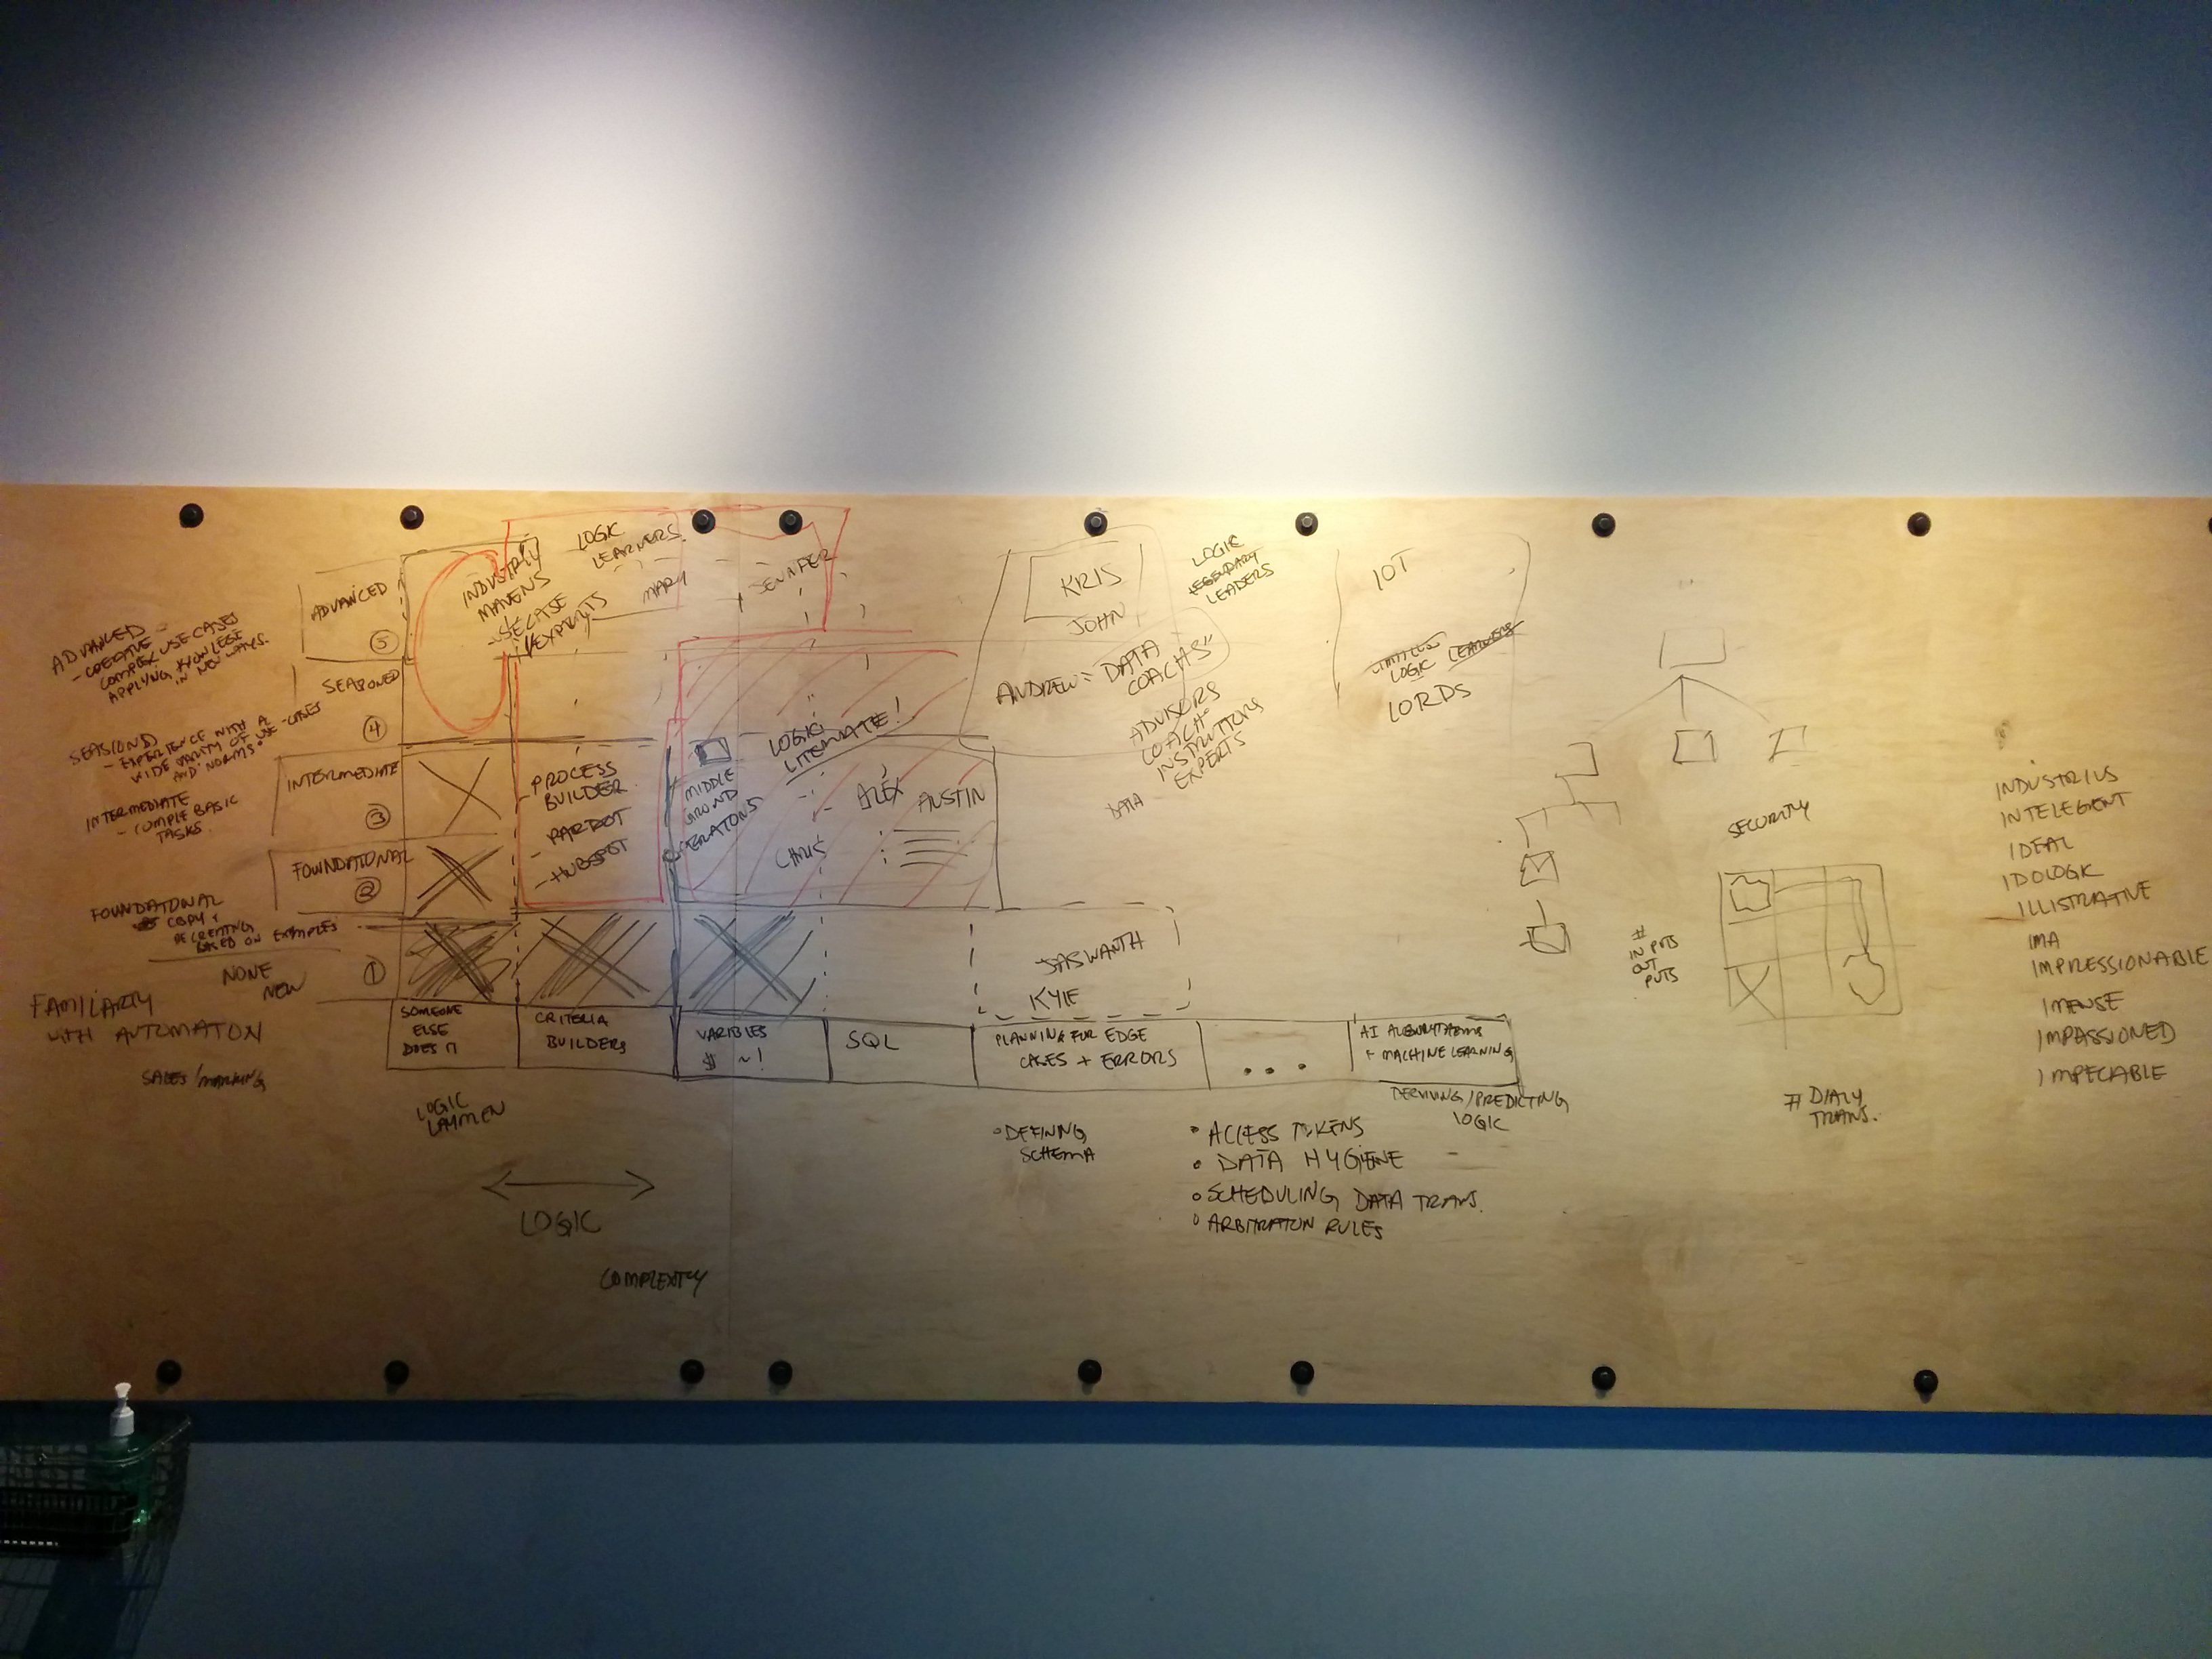 ADVANCED
- CREATIVE -
COMPLEX USE CASES
APPLYING KNOWLEGE
IN NEW WAYS.
SEASIOND
- EXPERIENCE WITH A
WIDE VARITY OF USE-CASES
AND NORMS.
INTERMEDIATE
- COMPLE BASIC
TASKS.
FOUNDATONAL
COPY +
RECREATING
BASED ON EXAMPLES
NONE
NEW
FAMILIARTY
WITH AUTOMATON
SALES/MARKING
ADVANCED
5
SEASONED
4
INTERMEDIATE
3
FOWNDATIONAL
2
1
INDUSTRIY
MAVENS
- USECATSE
EXPERTS
LOGIC
LEARNERS.
MARY
JENNIFER
- PROCESS
BUILDER
- PARDOT
- HUBSPOT
MIDDLE
GROUND
LOGIC
LITERATE!
CHRIS
- ALEX
AUSTIN
KRIS
JOHN
ANDREW = DATA
COACHS"
LOGIC
LEGENDARY
LEADERS
ADVISORS
COACH
INSTRUTTORS
EXPERTS
DATA
IOT
LIMITLESS
LOGIC LEARNERS
LORDS
JASWANTH
KYLE
SOMEONE
ELSE
DOES IT
CRITERIA
BUILDERS
VARIBLES
$ ~ !
SQL
PLANNING FOR EDGE
CASES + ERRORS
...
AI ALGORYTHEMS
+ MACHINE LEARNING
DERIVING/PREDICTING
LOGIC
LOGIC
LAYMEN
LOGIC
COMPLEXITY
• DEFINING
SCHEMA
• ACCESS TOKENS
• DATA HYGIENE
• SCHEDULING DATA TRANS.
• ARBITRATON RULES
SECURITY
#
INPUTS
OUT
PUTS
# DIALY
TRANS.
INDUSTRIUS
INTELEGENT
IDEAL
IDOLOGIC
ILLISTRATIVE
IMA
IMPRESSIONABLE
IMENSE
IMPASSIONED
IMPECIABLE